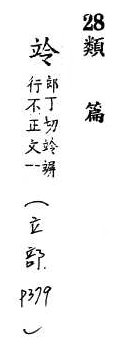 28類篇
竛
郎丁切竛竮
行不正文一
(立部 p379)